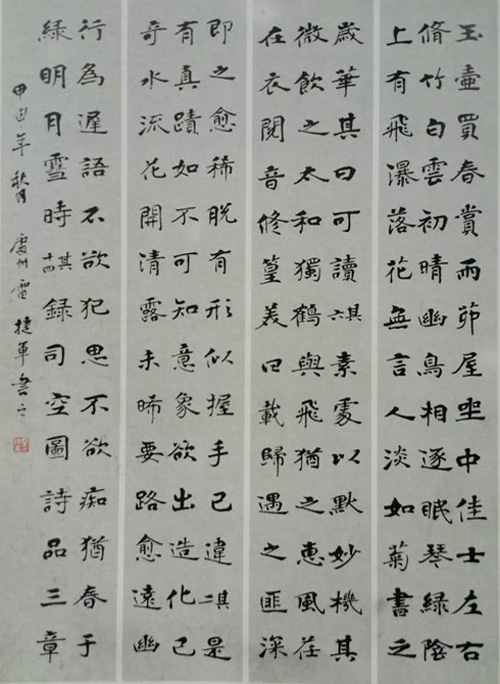 玉壺買春賞雨茆屋坐中佳士左右
脩竹白雲初晴幽鳥相逐眠琴綠陰
上有飛瀑落花無言人淡如菊書之
歲華其曰可讀其六素處以默妙機其
微飲之太和獨鶴與飛猶之惠風荏
在衣閱音修篁美曰載歸遇之匪深
即之愈稀脫有形似握手已違其二是
有真蹟如不可知意象欲出造化已
奇水流花開清露未晞要路愈遠幽
行為遲語不欲犯思不欲痴猶春于
綠明月雪時其十四錄司空圖詩品三章
甲申年秋月廬州雷捷軍書之